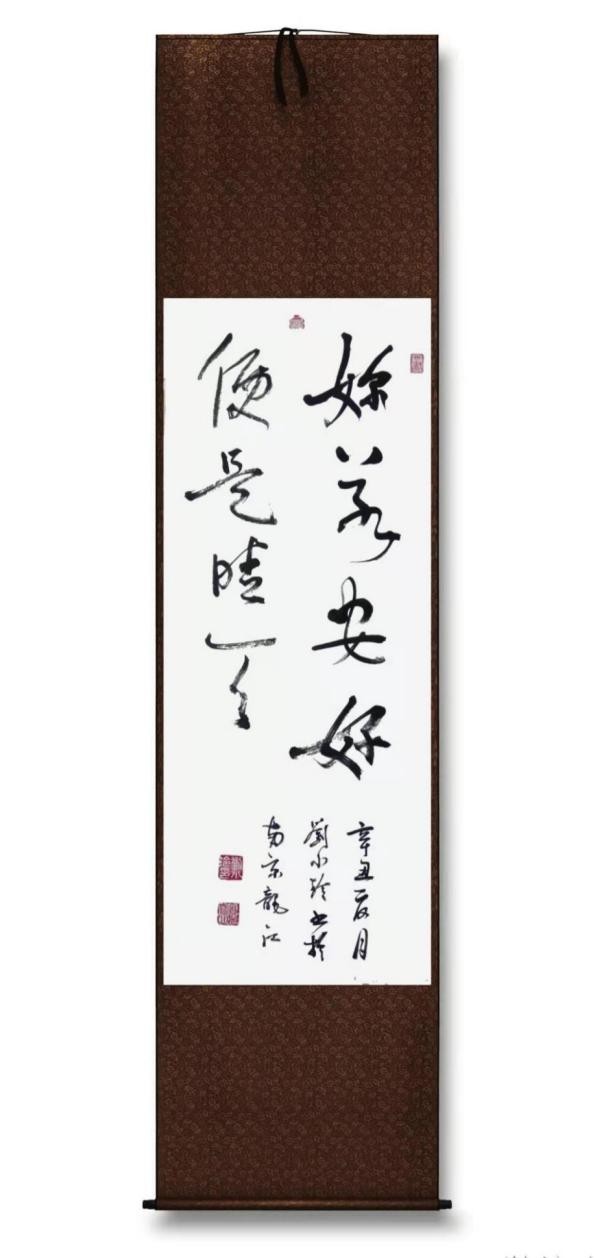 妳若安好
便是晴天
辛丑夏月
劉小书於
南京龍江